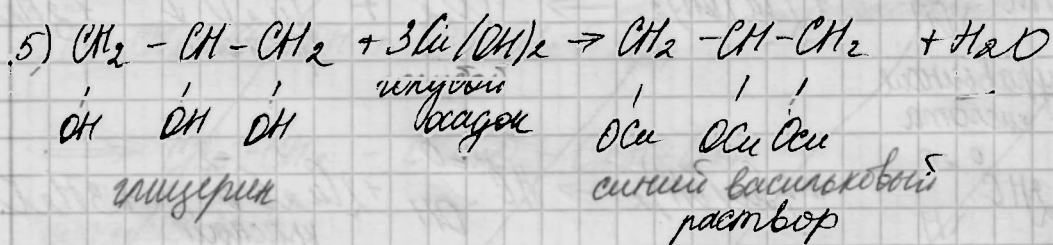 5) CH₂ - CH - CH₂ + 3Cu(OH)₂ → CH₂ - CH - CH₂ + H₂O
голубой
OH OH OH осадок OCu OCu OCu
глицерин синий васильковый
раствор